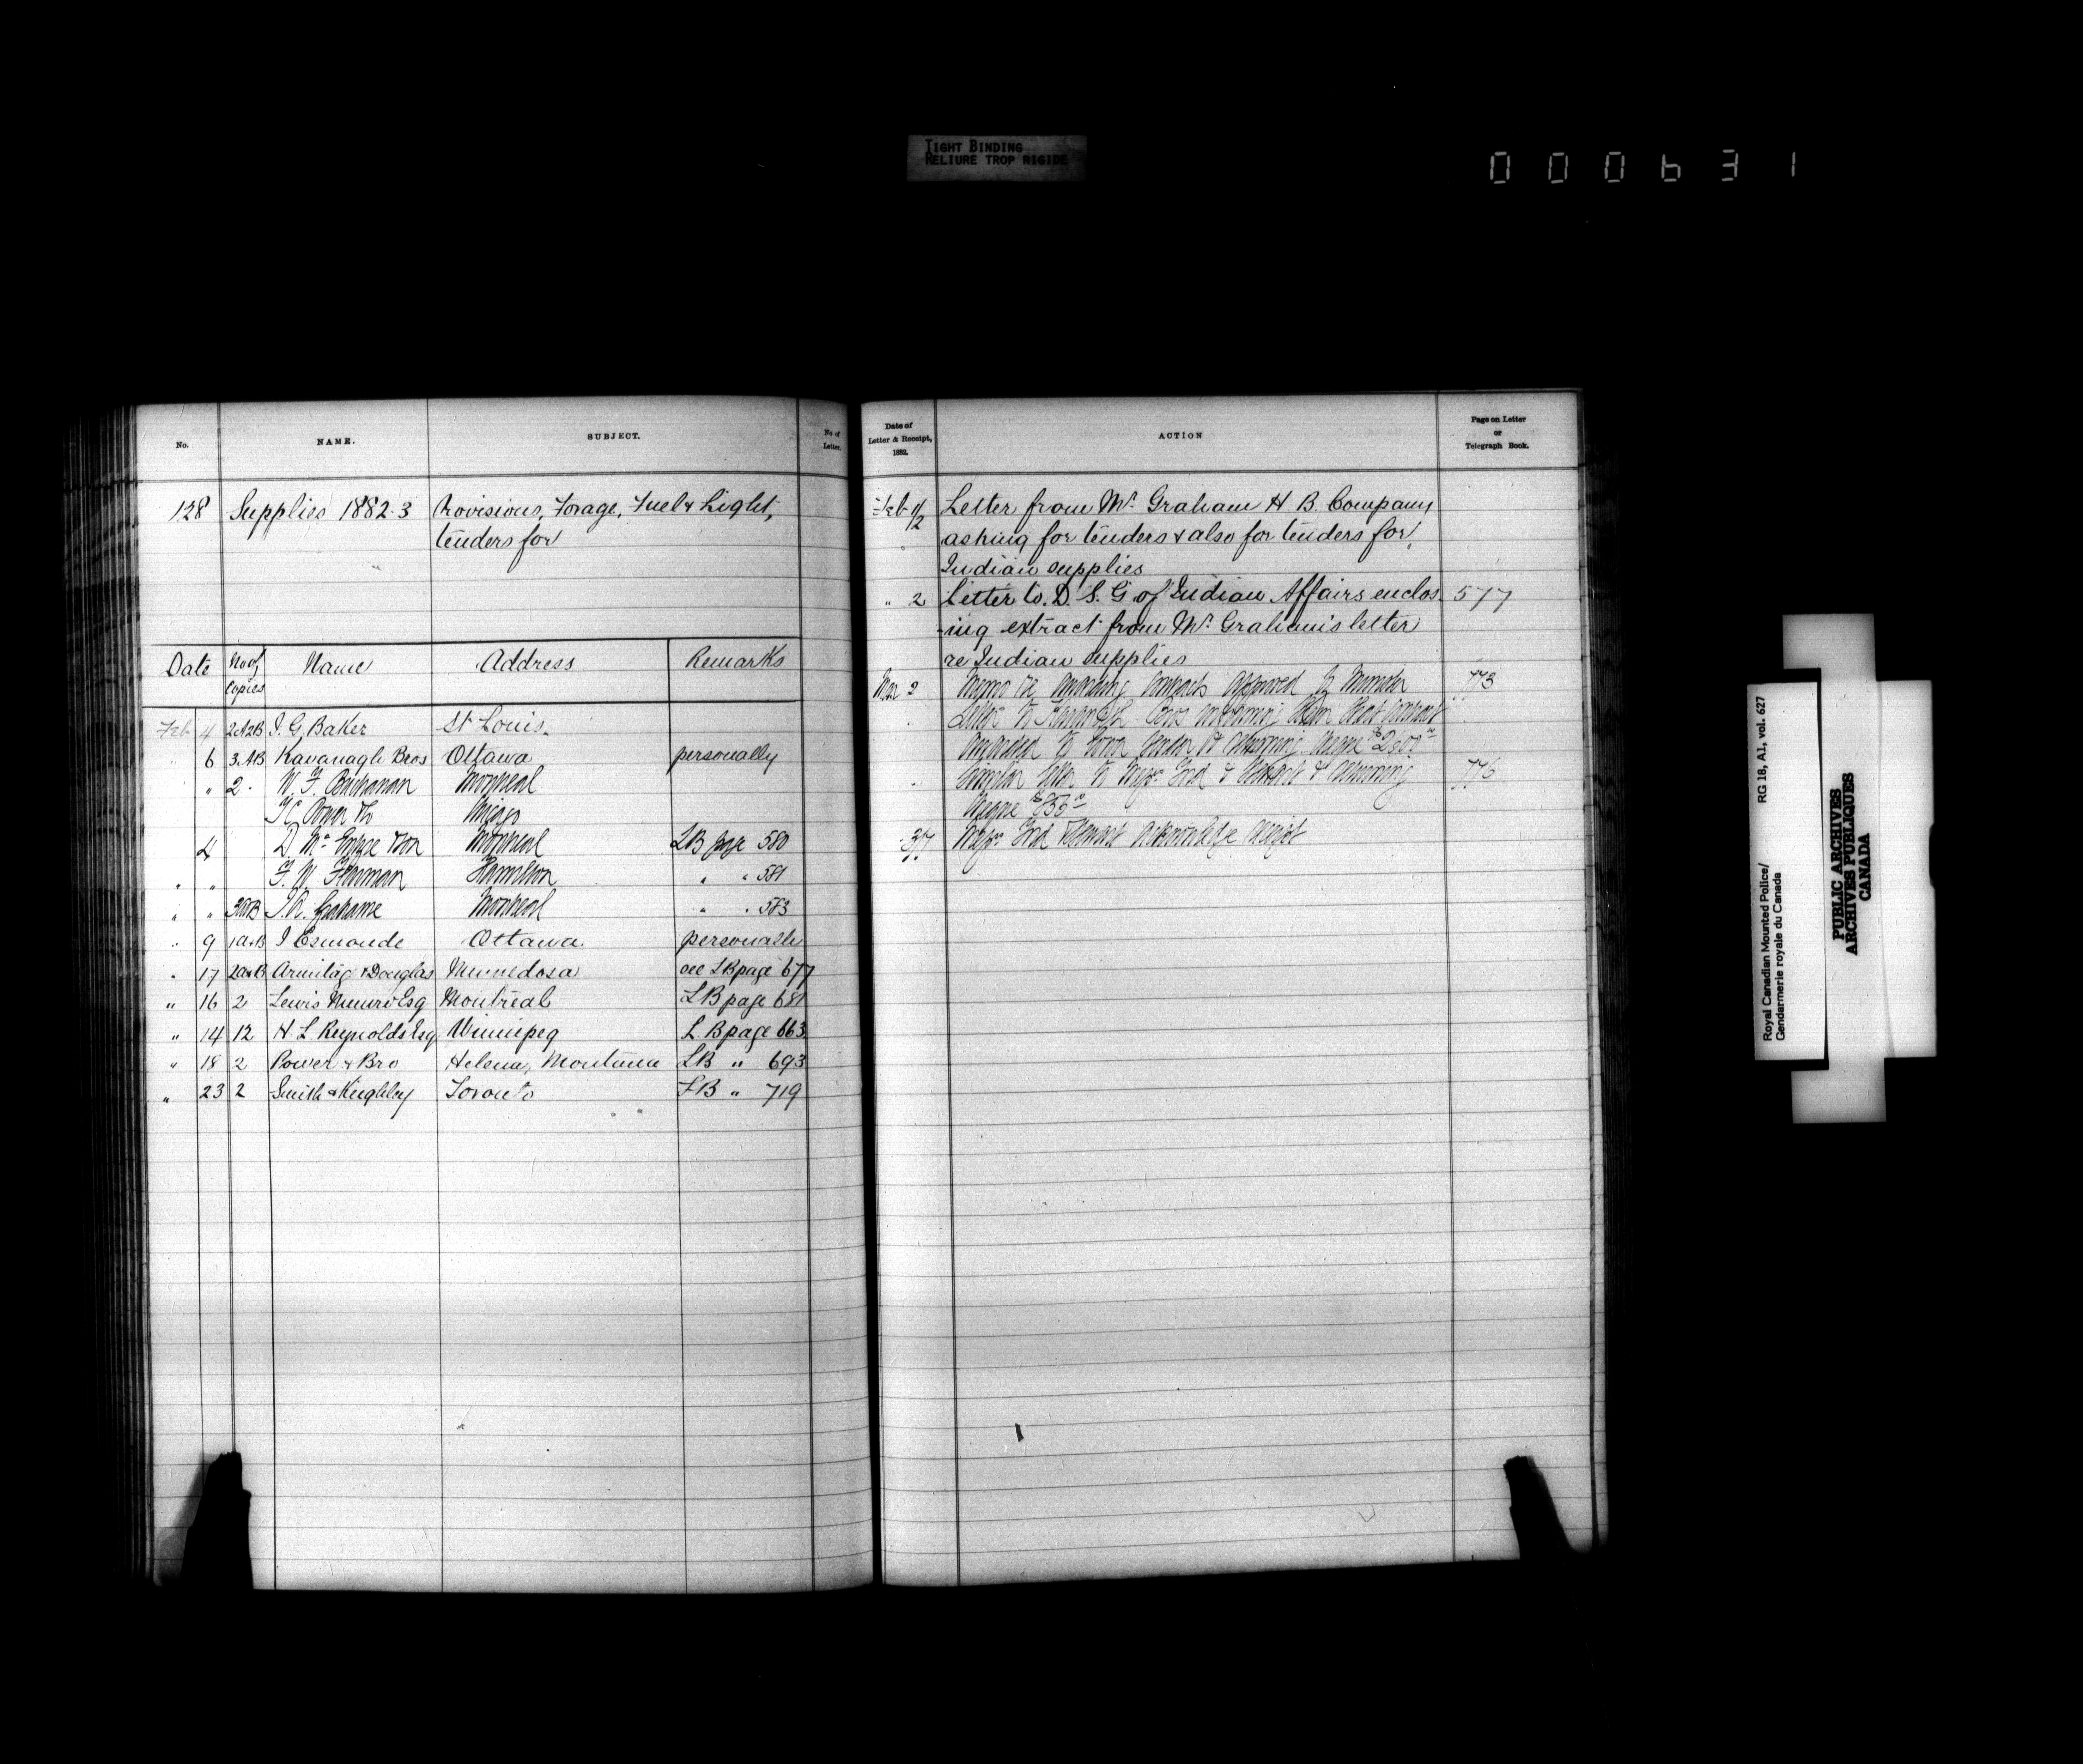 TIGHT BINDING
RELIURE TROP RIGIDE
000631
No.
NAME.
SUBJECT.
No of
Letter.
128
Supplies 1882-3
Provisions, Forage, Fuel & Light,
tenders for
Date
No of
Copies
Name
Address
Remarks
Feb 4 2A2B I. G. Baker St Louis.
6 3AB Kavanagh Bros Ottawa personally
" 2 W. F. Buchanan Montreal
Power
4 Montreal LB page 580
" " F. W. Fearman Hamilton " " 581
" " Grahame Montreal " " 583
" 9 1A&B J Esmonde Ottawa. personally
" 17 2A&B Armitage & Douglas Minnedosa see LB page 677
" 16 2 Lewis Munro Esq Montreal LB page 681
" 14 12 H. L. Reynolds Esq Winnipeg L B page 663
" 18 2 Power & Bro Helena, Montana LB " 693
" 23 2 Smith & Keighley Toronto LB " 719
Date of
Letter & Receipt,
1882.
ACTION
Page on Letter
or
Telegraph Book.
Feb 1/2 Letter from Mr. Graham H B. Company
asking for tenders & also for tenders for
Indian supplies
" 2 Letter to D. S. G of Indian Affairs enclos 577
-ing extract from Mr. Graham's letter
re Indian supplies
Mar 2 Memo re awarding contracts approved by Minister 773
Letter to Kavanagh Bros informing them that contract
awarded to
Similar letter to 776
acknowledge receipt
Royal Canadian Mounted Police/ RG 18, A1, vol. 627
Gendarmerie royale du Canada
PUBLIC ARCHIVES
ARCHIVES PUBLIQUES
CANADA